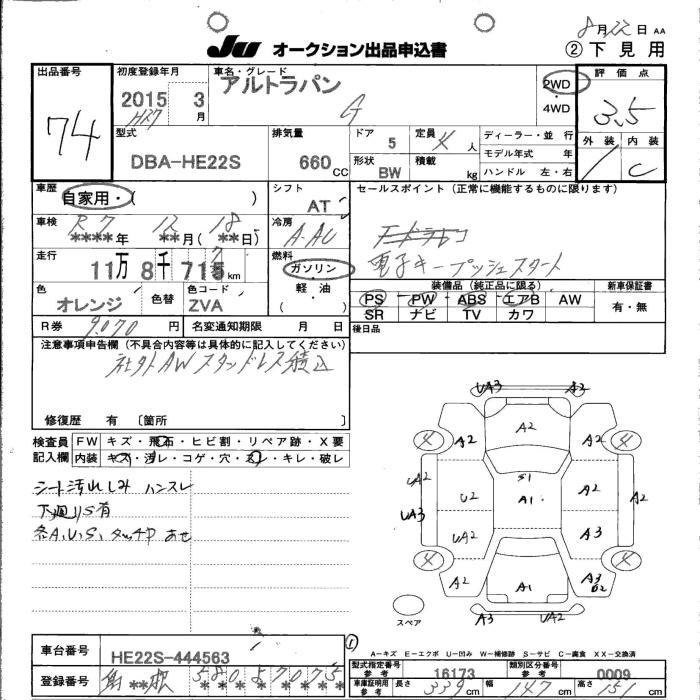 8月22日 AA
JU オークション出品申込書
②下見用
出品番号
74
初度登録年月
2015年 3月
H27
車名・グレード
アルトラパン
G
2WD
・
4WD
評価点
3.5
外装 内装
C
型式
DBA-HE22S
排気量
660 CC
ドア 5
定員 4 人
形状 BW
積載 kg
ディーラー・並 行
モデル年式 年
ハンドル 左・右
車歴
自家用・( )
シフト
AT
セールスポイント(正常に機能するものに限ります)
車検
R7 12 18
****年 **月(**日)
冷房
A-AC
電子キープッシュスタート
走行
11万8千715km
燃料
ガソリン
軽・油
( )
色
オレンジ
色替
色コード
ZVA
装備品(純正品に限る)
PS PW ABS エアB AW
SR ナビ TV カワ
新車保証書
有・無
R券 9070 円
名変通知期限 月 日
後日品
注意事項申告欄(不具合内容等は具体的に記入してください)
社外AW スタッドレス積込
修復歴 有 [箇所 ]
検査員
記入欄
FW キズ・飛石・ヒビ割・リペア跡・X要
内装 キズ・汚レ・コゲ・穴・スレ・キレ・破レ
シート汚れしみ ハンスレ
下廻りS有
各A,U,S,タッチP あせ
UA3 A2
4 A2 A2 A2 4
UA2 S1 A2
UA3 U2 A1 A2
UA2 A3
4 A2 A1 A3 4
U2
A3 UA2
スペア
A-キズ E-エクボ U-凹み W-補修跡 S-サビ C-腐食 XX-交換済
車台番号
HE22S-444563
登録番号
580
①
型式指定番号
参考
16173
類別区分番号
参考
0009
車庫証明用
参考
長さ 339 cm
幅 147 cm
高さ 151 cm